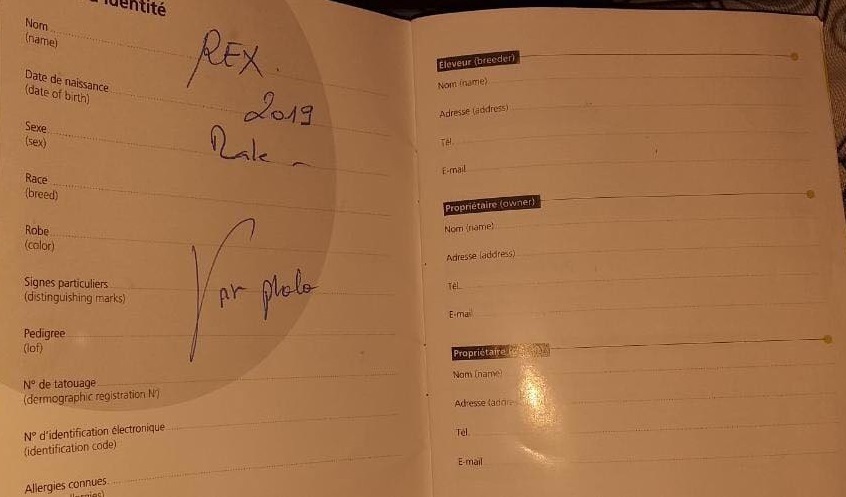 identité
Nom
(name)
REX
Date de naissance
(date of birth)
2019
Sexe
(sex)
Male
Race
(breed)
Robe
(color)
Signes particuliers
(distinguishing marks)
photo
Pedigree
(lof)
N° de tatouage
(dermographic registration N°)
N° d'identification électronique
(identification code)
Allergies connues
Eleveur (breeder)
Nom (name)
Adresse (address)
Tél.
E-mail
Propriétaire (owner)
Nom (name)
Adresse (address)
Tél.
E-mail
Propriétaire
Nom (name)
Adresse
Tél.
E-mail